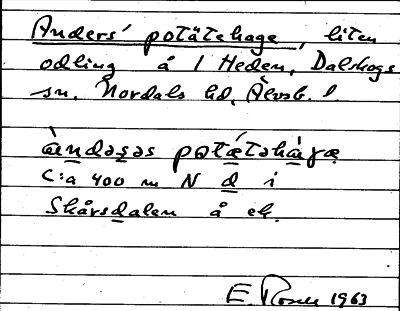 Anders' potätehage, liten
odling å 1 Heden, Dalskogs
sn, Nordals hd, Älvsb. l.
àndəʂəs pətǽtəhàgæ
C:a 400 m N d i
Skårsdalen å ek.
E. Rosen 1963